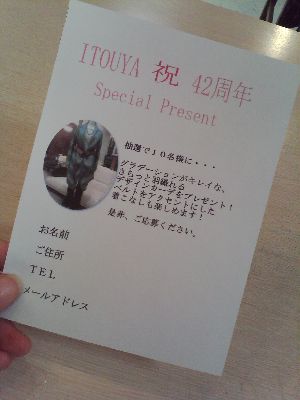 ITOUYA 祝 42周年
Special Present
抽選で10名様に・・・
グラデーションがキレイな、
さらっと羽織れる
デザインガーデをプレゼント!
ベルトをアクセントにした
着こなしも楽しめます!
是非、ご応募ください。
お名前
ご住所
TEL
メールアドレス